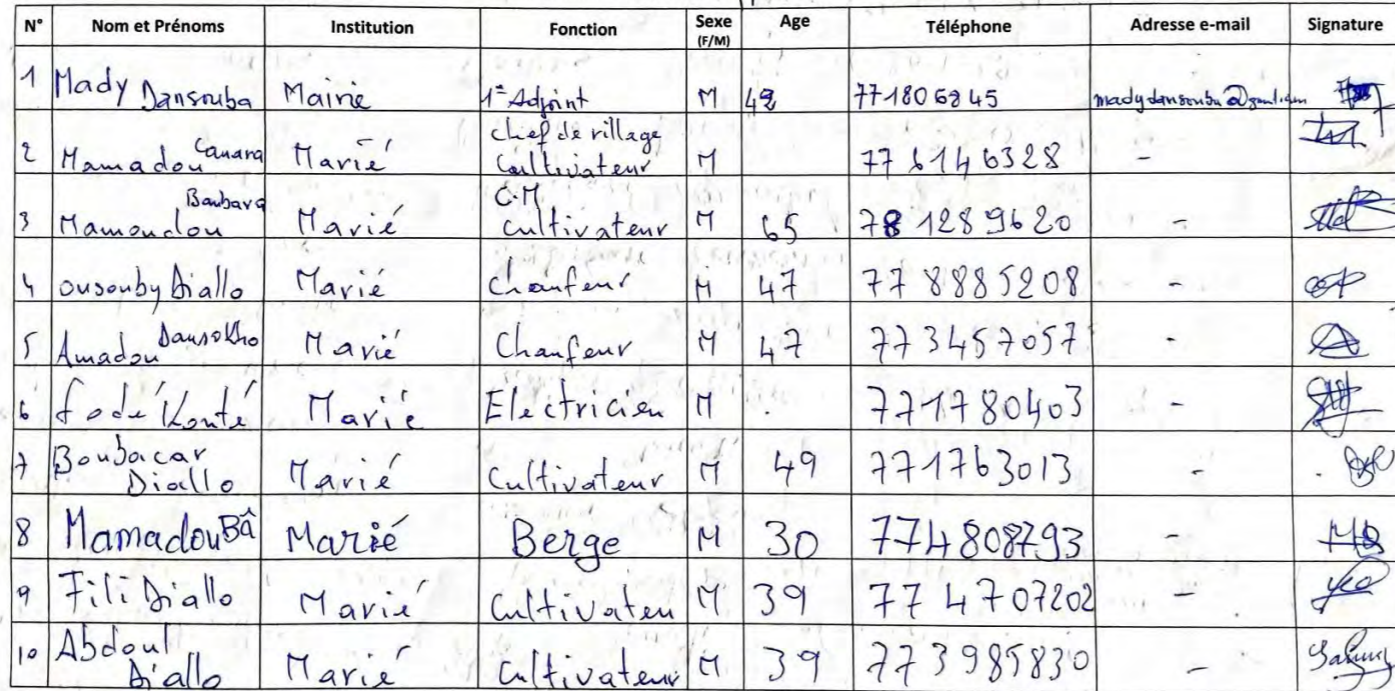 N° Nom et Prénoms Institution Fonction Sexe (F/M) Age Téléphone Adresse e-mail Signature
1 Mady Dansouba Mairie 1° Adjoint M 42 771806245
2 Mamadou Camara Marié chef de village Cultivateur M 776146328 -
3 Mamoudou Bambara Marié C.M Cultivateur M 65 781289620 -
4 ousouby Diallo Marié Chaufeur M 47 778885208 -
5 Amadou Dansokho Marié Chaufeur M 47 773457057 -
6 fodé Konté Marié Electricien M . 771780403 -
7 Boubacar Diallo Marié Cultivateur M 49 771763013 -
8 Mamadou Bâ Marié Berge M 30 774808793 -
9 Fili Diallo Marié Cultivateu M 39 774707202 -
10 Abdoul Diallo Marié Cultivateur M 39 773985830 -